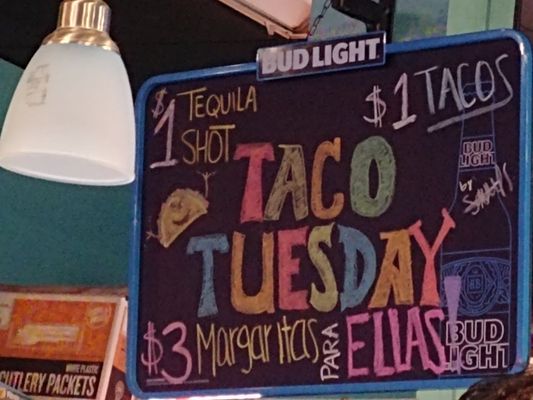 BUD LIGHT
$1 TEQUILA SHOT
$1 TACOS
TACO
TUESDAY!
$3 Margaritas PARA ELLAS!
BUD LIGHT
by
BUD LIGHT
WHITE PLASTIC
CUTLERY PACKETS